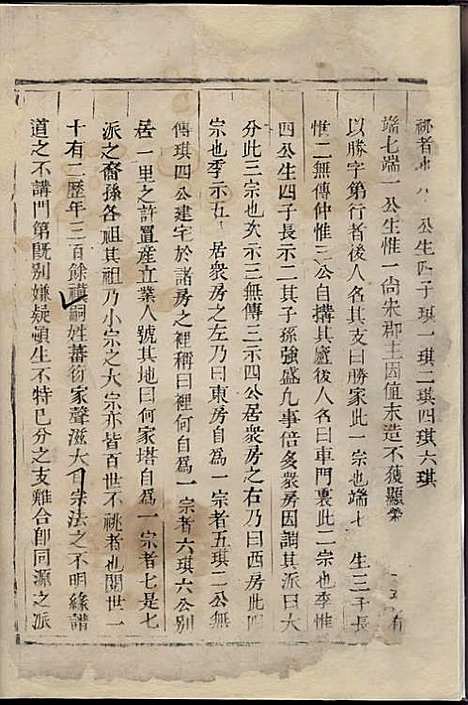 祧者也 公生四子琪一琪二琪四琪六琪
端七端一公生惟一尚朱郡主因值末造不獲顯 有
以勝字第行者後人名其支曰勝家此一宗也端七 生三子長
惟二無傳仲惟三公自搆其廬後人名曰車門裏此二宗也季惟
四公生四子長示二其子孫強盛凡事倍多衆房因謂其派曰大
分此三宗也次示三無傳三示四公居衆房之右乃曰西房此四
宗也季示五 居衆房之左乃曰東房自為一宗者五琪二公無
傳琪四公建宅於諸房之裡稱曰裡何自為一宗者六琪六公別
居一里之許置產立業人號其地曰何家塔自為一宗者七是七
派之裔孫各祖其祖乃小宗之大宗亦皆百世不祧者也閱世一
十有二歷年三百餘禩嗣姓蕃衍家聲滋大 宗法之不明緣譜
道之不講門第既別嫌疑頓生不特已分之支難合卽同源之派